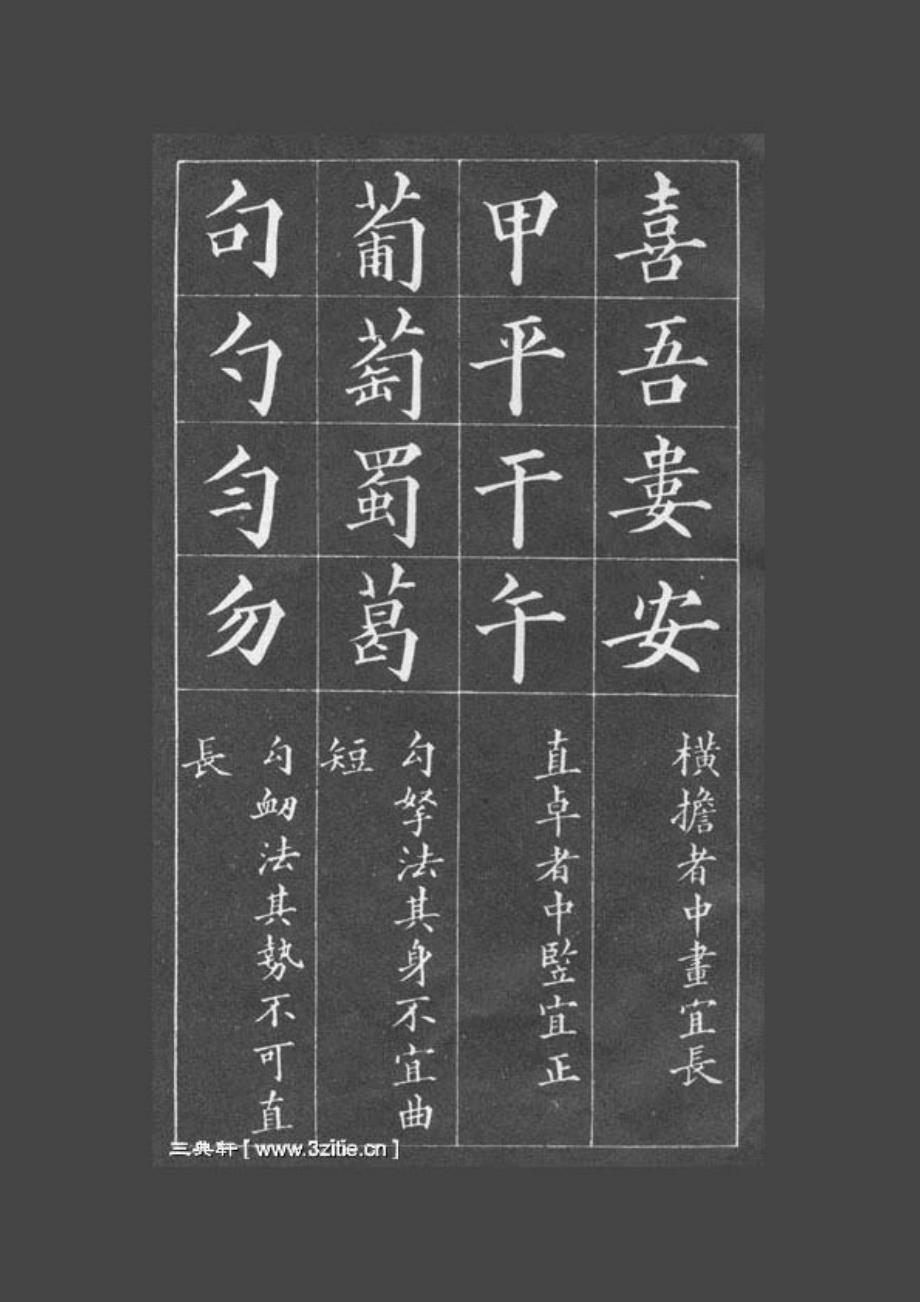 喜吾婁安
橫擔者中畫宜長
甲平干午
直卓者中竪宜正
葡萄蜀葛
勾拏法其身不宜曲
短
句勺勻勿
勾衂法其勢不可直
長
三典軒[www.3zitie.cn]